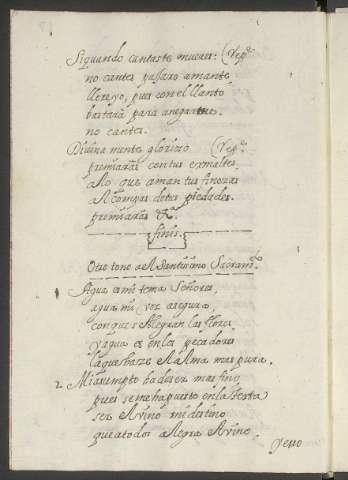 Siquando cantaste mueres: (Rep.
no cantes paxaro amante
llereyo, pues con el llanto
bastara para anegarme
no cantes.
Divina mente glorioso (Rep.
premiaras con tus esmaltes
a lo que aman tus finezas
Al compas de tus piedades.
premiaras &.a
finis.
Otro tono al Santissimo Sacram.to
Agua es mi tema Señores,
agua mi voz asegura
con que se Alegran las flores
y agua es en los pecadores
la que haze Al Alma mas pura.
2 Mi asumpto ha de ser mas fino
pues se me ha puesto en la testa
ser Avino mi destino
que a todos Alegra Avino.